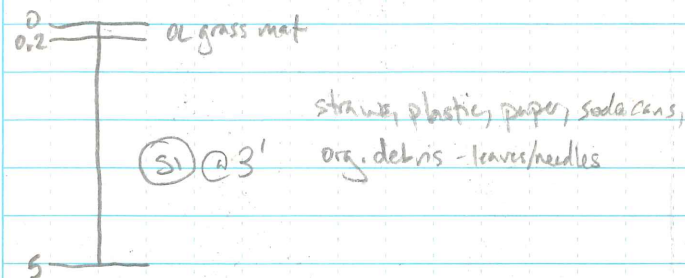 0
0.2 OL grass mat
straws, plastic, paper, soda cans,
S1 @ 3' org. debris - leaves/needles
5